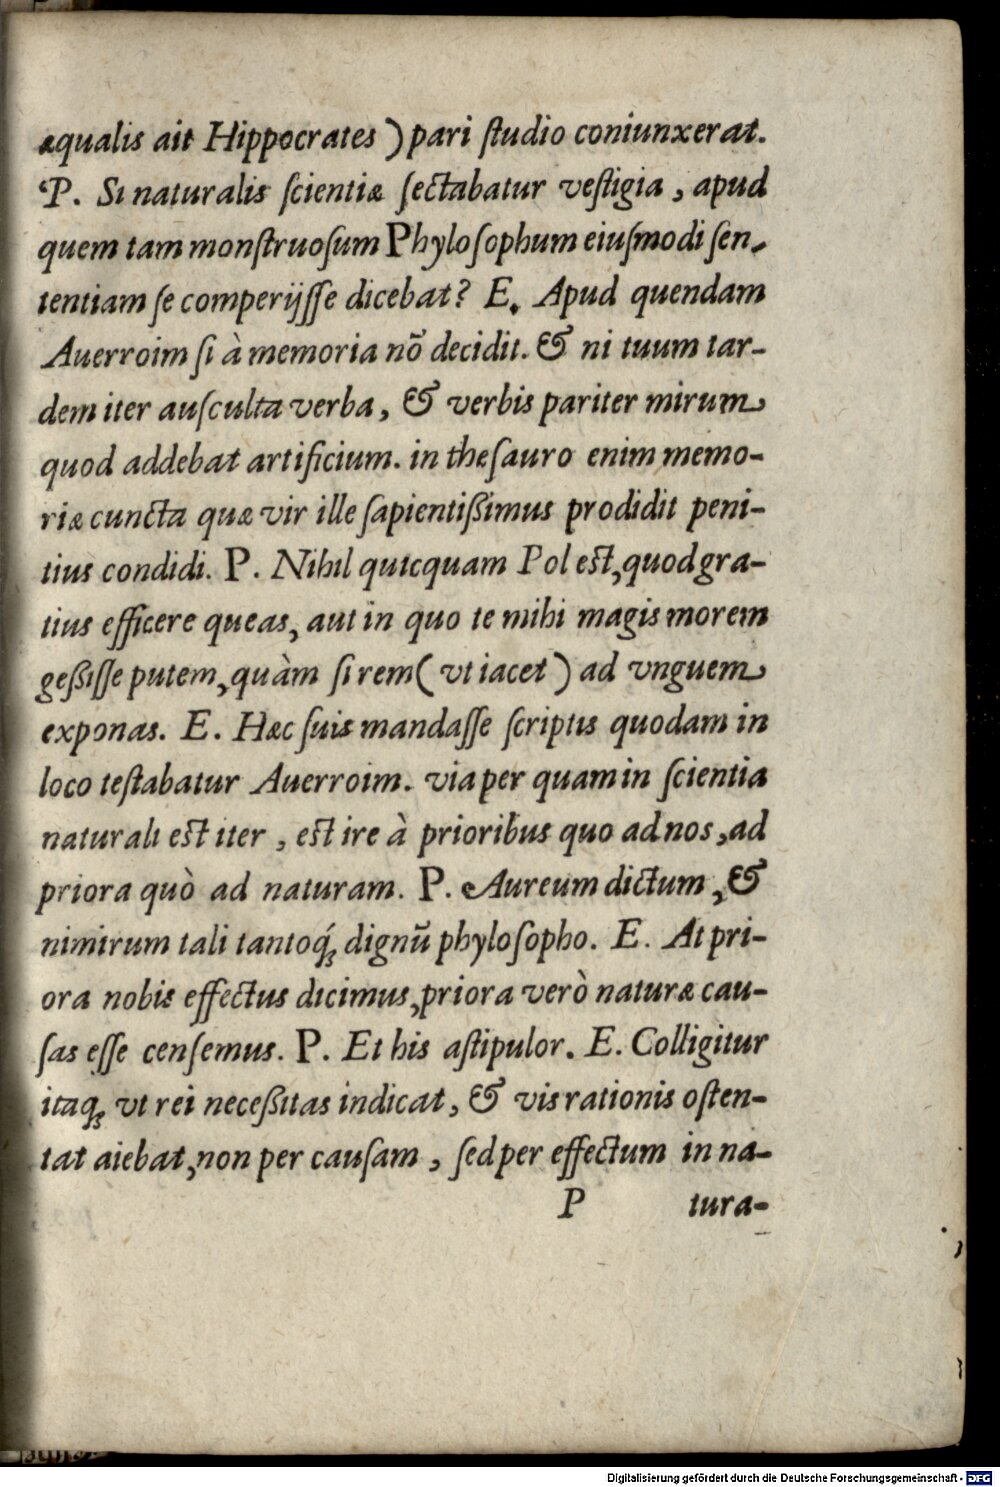 æqualis ait Hippocrates ) pari ſtudio coniunxerat.
P. Si naturalis ſcientiæ ſectabatur veſtigia, apud
quem tam monſtruoſum Phyloſophum eiuſmodi ſen-
tentiam ſe comperijſſe dicebat? E. Apud quendam
Auerroim ſi à memoria nõ decidit. & ni tuum tar-
dem iter auſculta verba, & verbis pariter mirum
quod addebat artificium. in theſauro enim memo-
riæ cuncta quæ vir ille ſapientißimus prodidit peni-
tius condidi. P. Nihil quicquam Pol eſt, quod gra-
tius efficere queas, aut in quo te mihi magis morem
geßiſſe putem, quàm ſi rem ( vt iacet ) ad vnguem
exponas. E. Hæc ſuis mandaſſe ſcriptis quodam in
loco teſtabatur Auerroim. via per quam in ſcientia
naturali eſt iter, eſt ire à prioribus quo ad nos, ad
priora quò ad naturam. P. Aureum dictum, &
nimirum tali tantoq́; dignũ phyloſopho. E. At pri-
ora nobis effectus dicimus, priora verò naturæ cau-
ſas eſſe cenſemus. P. Et his aſtipulor. E. Colligitur
itaq; vt rei neceßitas indicat, & vis rationis oſten-
tat aiebat, non per cauſam, ſed per effectum in na-
P tura-
Digitalisierung gefördert durch die Deutsche Forschungsgemeinschaft - DFG